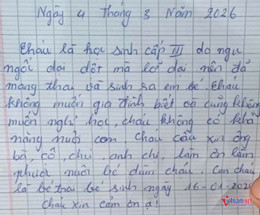 Ngày 4 Tháng 3 Năm 2026
Cháu là học sinh cấp III do ngu
ngối dại dột mà lỡ dại nên đã
mang thai và sinh ra em bé. Cháu
không muốn gia đình biết cô cũng không
muốn nghỉ học, cháu không có khả
năng nuôi con. Cháu cầu xin ông
bà, cô, chú, anh chị, làm ơn làm
phước nuôi bé dùm cháu. Con cháu
là bé trai bé sinh ngày 16-01-202
cháu xin cảm ơn ạ!